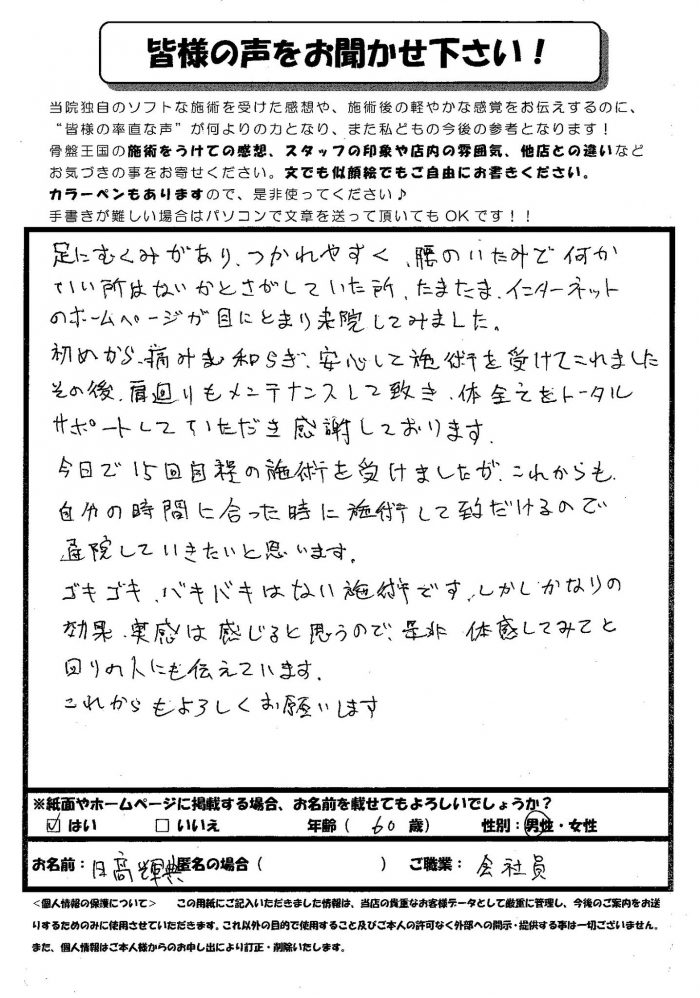 皆様の声をお聞かせ下さい！
当院独自のソフトな施術を受けた感想や、施術後の軽やかな感覚をお伝えするのに、
“皆様の率直な声”が何よりの力となり、また私どもの今後の参考となります！
骨盤王国の施術をうけての感想、スタッフの印象や店内の雰囲気、他店との違いなど
お気づきの事をお寄せください。文でも似顔絵でもご自由にお書きください。
カラーペンもありますので、是非使ってください♪
手書きが難しい場合はパソコンで文章を送って頂いてもOKです！！
足にむくみがあり、つかれやすく、腰のいたみで何か
いい所はないかとさがしていた所、たまたま、インターネット
のホームページが目にとまり来院してみました。
初めから、痛みも和らぎ、安心して施術を受けてこれました
その後、肩回りもメンテナンスして致き、体全てをトータル
サポートしていただき感謝しております。
今日で15回目程の施術を受けましたが、これからも、
自分の時間に合った時に施術して致だけるので
通院していきたいと思います。
ゴキゴキ、バキバキはない施術です、しかしかなりの
効果、実感は感じると思うので、是非 体感してみてと
回りの人にも伝えています。
これからもよろしくお願いします
※紙面やホームページに掲載する場合、お名前を載せてもよろしいでしょうか？
☑ はい □ いいえ 年齢（ 60 歳） 性別：男性・女性
お名前：日高輝典 匿名の場合（ ） ご職業：会社員
＜個人情報の保護について＞ この用紙にご記入いただきました情報は、当店の貴重なお客様データとして厳重に管理し、今後のご案内をお送
りするためのみに使用させていただきます。これ以外の目的で使用すること及びご本人の許可なく外部への開示・提供する事は一切ございません。
また、個人情報はご本人様からのお申し出により訂正・削除いたします。